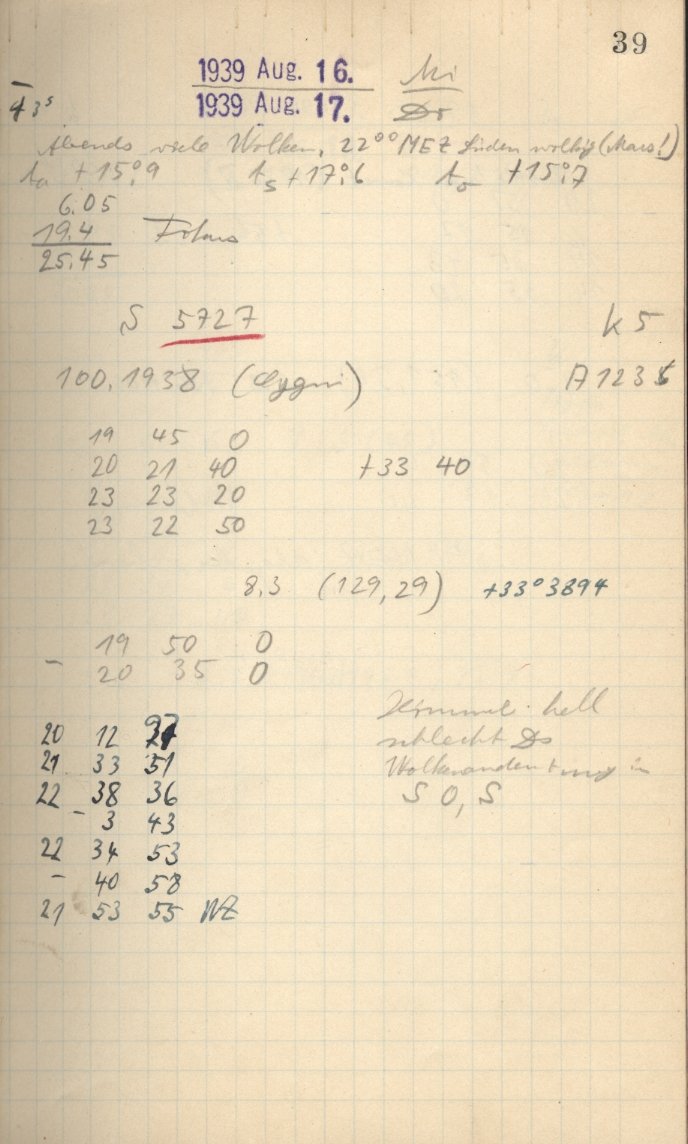 39
1939 Aug. 16. Mi
1939 Aug. 17. Do
43ˢ
Abends viele Wolken, 22⁰⁰ MEZ Süden wolkig (Mars!)
tₐ +15°,9 tₛ +17°,6 +15°,7
6.05
19.4
25.45
S 5727 K 5
100.1938 (Cygni) A 123
19 45 0
20 21 40 +33 40
23 23 20
23 22 50
8,3 (129,29) +33°3894
19 50 0
- 20 35 0
Himmel hell
20 12
schlecht Ds
21 33 51
Wolkenandeutung in
22 38 36
S O, S
- 3 43
22 34 53
- 40 58
21 53 55 WZ